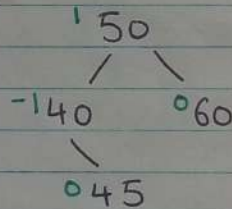 1 50
-1 40 0 60
0 45